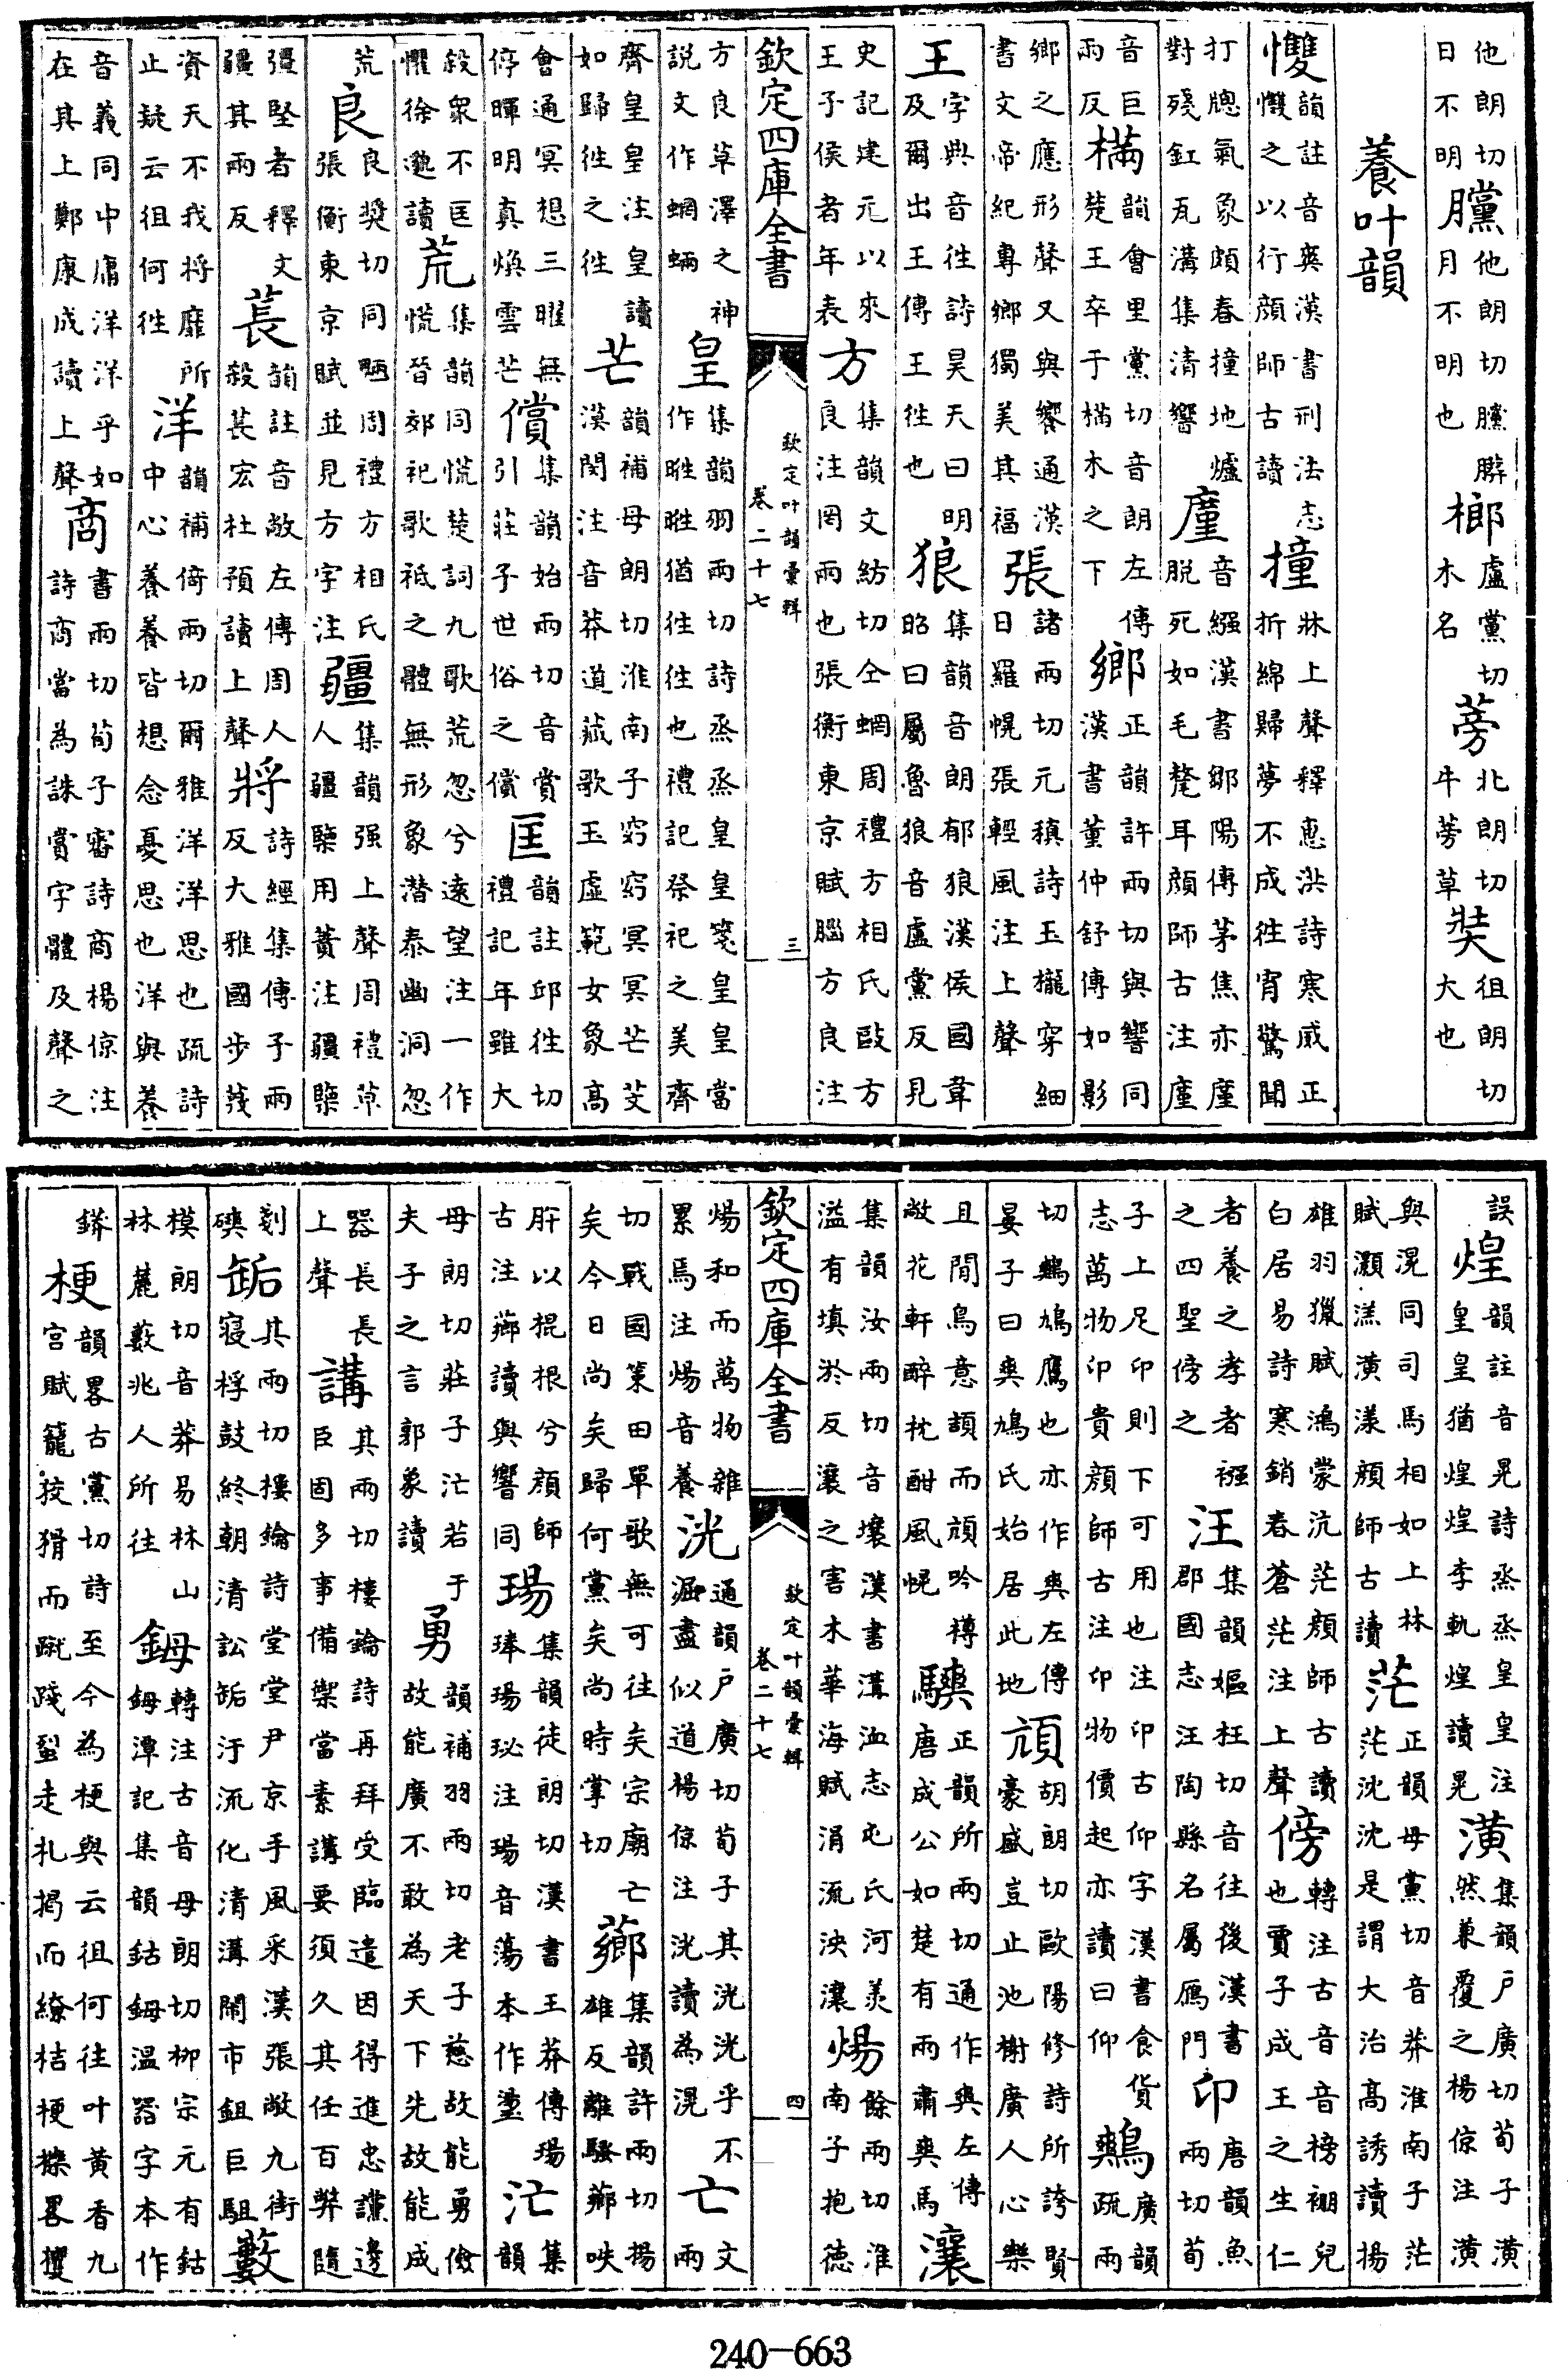 他朗切日不明矘他朗切矘䑗月不明也榔盧黨切木名蒡北朗切牛蒡草奘徂朗切大也
養叶韻
㦼韻註音爽漢書刑法志㦼之以行顔師古讀撞牀上聲釋惠洪詩寒威正折綿歸夢不成徃宵驚聞
打牕氣象頗春撞地爐對殘釭瓦溝集清響廑音繦漢書鄒陽傳茅焦亦廑脫死如毛氂耳顔師古注廑
音巨兩反樠楚王卒于樠木之下韻會里黨切音朗左傳鄉正韻許兩切與響同漢書董仲舒傳如影
鄉之應形聲又與饗通漢書文帝紀專鄉獨美其福張諸兩切元稹詩玉櫳穿細日羅幌張輕風注上聲
王字典音徃詩昊天曰明及爾出王傳王徃也狼集韻音朗郁狼漢侯國韋昭曰屬魯狼音盧黨反見
史記建元以來王子侯者年表方集韻文紡切仝蝄周禮方相氏敺方良注罔兩也張衡東京賦腦方良注
欽定四庫全書 欽定叶韻彙輯 卷二十七 三
方良草澤之神説文作蝄蜽皇集韻羽兩切詩烝烝皇皇箋皇皇當作暀暀猶徃徃也禮記祭祀之美齊
齊皇皇注皇讀如歸徃之徃芒韻補母朗切淮南子窈窈冥冥芒芠漠閔注音莽道藏歌玉虛範女象高
會通冥想三曜無停暉明真煥雲芒償集韻始兩切音賞引莊子世俗之償匡韻註邱徃切禮記年雖大
殺衆不匡懼徐邈讀荒集韻同慌楚詞九歌荒忽兮遠望注一作慌晉郊祀歌祗之體無形象潛泰幽洞忽
荒良良奬切同魎周禮方相氏張衡東京賦並見方字注彊集韻强上聲周禮草人彊㯺用蕡注彊㯺
彊堅者釋文疆其兩反萇韻註音敞左傳周人殺萇宏杜預讀上聲將詩經集傳子兩反大雅國步蔑
資天不我將靡所止疑云徂何徃洋韻補倚兩切爾雅洋洋思也疏詩中心養養皆想念憂思也洋與養
音義同中庸洋洋乎如在其上鄭康成讀上聲商書兩切荀子審詩商楊倞注詩商當為誅賞字體及聲之
誤煌韻註音晃詩烝烝皇皇注皇皇猶煌煌李軌煌讀晃潢集韻户廣切荀子潢然兼覆之楊倞注潢
與滉同司馬相如上林賦灝溔潢漾顔師古讀茫正韻母黨切音莽淮南子茫茫沈沈是謂大治高誘讀揚
雄羽獵賦鴻蒙沆茫顔師古讀白居易詩寒銷春蒼茫注上聲傍轉注古音音榜兒也賈子成王之生仁
者養之孝者襁之四聖傍之汪集韻嫗枉切音往後漢書郡國志汪陶縣名屬鴈門卬唐韻魚兩切荀
子上足卬則下可用也注卬古仰字漢書食貨志萬物卬貴顔師古注卬物價起亦讀曰仰鷞廣韻疏兩
切鷞鳩鷹也亦作爽左傳晏子曰爽鳩氏始居此地頏胡朗切歐陽修詩所誇賢豪盛豈止池榭廣人心樂
且閒鳥意頡而頏吟樽敞花軒醉枕酣風幌騻正韻所兩切通作爽左傳唐成公如楚有兩肅爽馬瀼
集韻汝兩切音壤漢書溝洫志屯氏河羡溢有填淤反瀼之害木華海賦涓流泱瀼煬餘兩切淮南子抱德
欽定四庫全書 欽定叶韻彙輯 卷二十七 四
煬和而萬物雜累焉注煬音養洸通韻户廣切荀子其洸洸乎不淈盡似道楊倞注洸讀為滉亡文兩
切戰國策田單歌無可往矣宗廟亡矣今日尚矣歸何黨矣尚時掌切薌集韻許兩切揚雄反離騷薌呹
肸以棍根兮顔師古注薌讀與響同瑒集韻徒朗切漢書王莽傳瑒琫瑒珌注瑒音蕩本作璗汒集韻
母朗切莊子汒若于夫子之言郭象讀勇韻補羽兩切老子慈故能勇儉故能廣不敢為天下先故能成
器長長長上聲講其兩切樓鑰詩再拜受臨遣因得進忠讜邊臣固多事備禦當素講要須久其任百弊隨
刻磢缿其兩切樓鑰詩堂堂堂尹京手風采漢張敞九街寢桴鼓終朝清訟缿汙流化清溝鬧市鉏巨駔藪
模朗切音莽易林山林麓藪兆人所往鉧轉注古音母朗切柳宗元有鈷鉧潭記集韻鈷鉧温器字本作
梗韻畧古黨切詩至今為梗與云徂何往叶黃香九宮賦籠狡猾而蹴踐蛩走札揭而繚桔梗畧攫
240-663